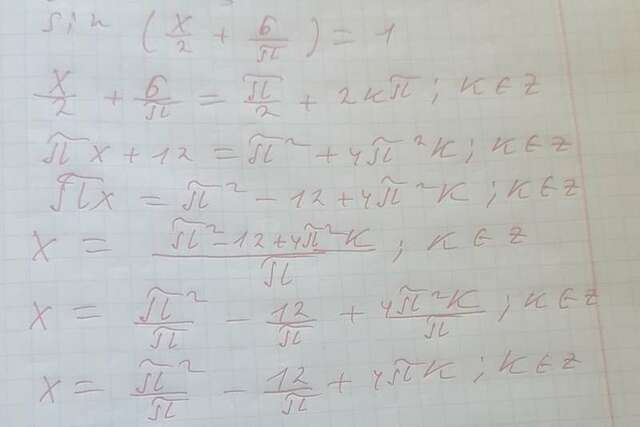 sin (x/2 + 6/π) = 1
x/2 + 6/π = π/2 + 2кπ; к ∈ z
πx + 12 = π² + 4π²к; к ∈ z
πx = π² - 12 + 4π²к; к ∈ z
x = (π² - 12 + 4π²к)/π; к ∈ z
x = π²/π - 12/π + 4π²к/π; к ∈ z
x = π²/π - 12/π + 4πк; к ∈ z